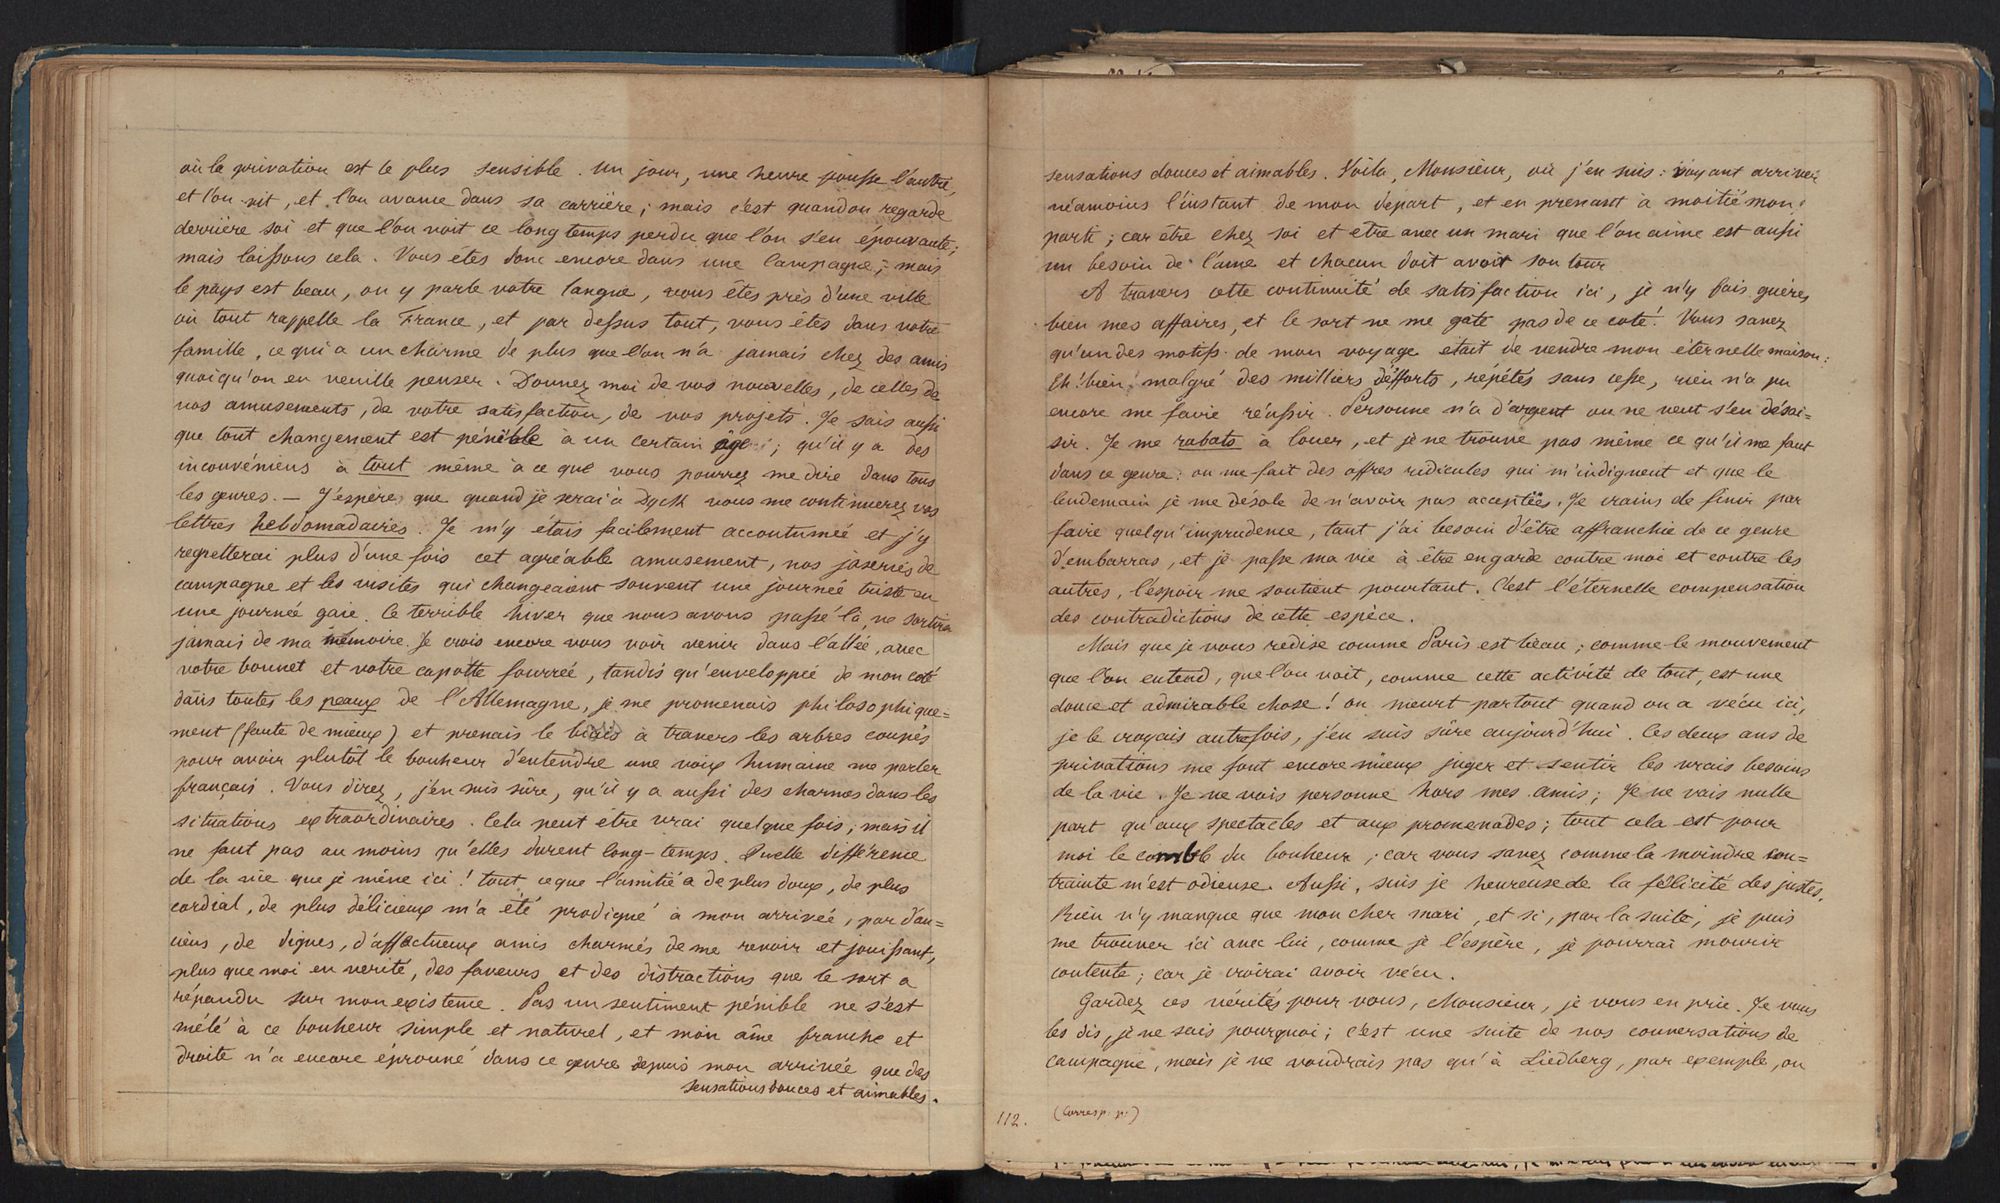 où la privation est le plus sensible. Un jour, une heure pousse l'autre,
et l'on vit, et l'on avance dans sa carrière; mais c'est quand on regarde
derrière soi et que l'on voit ce long temps perdu que l'on s'en épouvante;
mais laissons cela. Vous êtes donc encore dans une Campagne; mais
le pays est beau, on y parle votre langue, vous êtes près d'une ville
où tout rappelle la France, et par dessus tout, vous êtes dans votre
famille, ce qui a un charme de plus que l'on n'a jamais chez des amis
quoiqu'on en veuille penser. Donnez moi de vos nouvelles, de celles de
vos amusements, de votre satisfaction, de vos projets. Je sais aussi
que tout changement est pénible à un certain âge; qu'il y a des
inconvéniens à tout même à ce que vous pourrez me dire dans tous
les genres. — J'espère que quand je serai à Dyck vous me continuerez vos
lettres hebdomadaires. Je m'y étais facilement accoutumée et j'y
regretterai plus d'une fois cet agréable amusement, nos jaseries de
campagne et les visites qui changeaient souvent une journée triste en
une journée gaie. Ce terrible hiver que nous avons passé là, ne sortira
jamais de ma mémoire. Je crois encore vous voir venir dans l'allée, avec
votre bonnet et votre capotte fourrée, tandis qu'enveloppée de mon coté
dans toutes les peaux de l'Allemagne, je me promenais philosophique=
ment (faute de mieux) et prenais le biais à travers les arbres coupés
pour avoir plutôt le bonheur d'entendre une voix humaine me parler
français. Vous direz, j'en suis sûre, qu'il y a aussi des charmes dans les
situations extraordinaires. Cela peut être vrai quelque fois; mais il
ne faut pas au moins qu'elles durent long-temps. Quelle différence
de la vie que je mène ici! tout ce que l'amitié a de plus doux, de plus
cordial, de plus délicieux m'a été prodigué à mon arrivée, par d'an=
ciens, de dignes, d'affectueux amis charmés de me revoir et jouissant,
plus que moi en verité, des faveurs et des distractions que le sort a
répandu sur mon existence. Pas un sentiment pénible ne s'est
mêlé à ce bonheur simple et naturel, et mon âme franche et
droite n'a encore éprouvé dans ce genre depuis mon arrivée que des
sensations douces et aimables.
sensations douces et aimables. Voila, Monsieur, où j'en suis: voyant arriver
néamoins l'instant de mon départ, et en prenant à moitié mon
parti; car être chez soi et être avec un mari que l'on aime est aussi
un besoin de l'ame et chacun doit avoir son tour
A travers cette continuité de satisfaction ici, je n'y fais guères
bien mes affaires, et le sort ne me gate pas de ce coté. Vous savez
qu'un des motifs de mon voyage etait de vendre mon éternelle maison:
Eh! bien! malgré des milliers d'éfforts, répétés sans cesse, rien n'a pu
encore me faire réussir. Personne n'a d'argent ou ne veut s'en désai=
sir. Je me rabats à louer, et je ne trouve pas même ce qu'il me faut
dans ce genre: on me fait des offres ridicules qui m'indignent et que le
lendemain je me désole de n'avoir pas acceptées. Je crains de finir par
faire quelqu'imprudence, tant j'ai besoin d'être affranchie de ce genre
d'embarras, et je passe ma vie à être en garde contre moi et contre les
autres, l'espoir me soutient pourtant. C'est l'éternelle compensation
des contradictions de cette espèce.
Mais que je vous redise comme Paris est beau; comme le mouvement
que l'on entend, que l'on voit, comme cette activité de tout, est une
douce et admirable chose! on meurt partout quand on a vécu ici,
je le croyais autrefois, j'en suis sûre aujourd'hui. Ces deux ans de
privations me font encore mieux juger et sentir les vrais besoins
de la vie. Je ne vois personne hors mes amis; Je ne vais nulle
part qu'aux spectacles et aux promenades; tout cela est pour
moi le comble du bonheur; car vous savez comme la moindre con=
trainte m'est odieuse. Aussi, suis je heureuse de la félicité des justes.
Rien n'y manque que mon cher mari, et si, par la suite, je puis
me trouver ici avec lui, comme je l'espère, je pourrai mourir
contente; car je croirai avoir vécu.
Gardez ces vérités pour vous, Monsieur, je vous en prie. Je vous
les dis, je ne sais pourquoi; c'est une suite de nos conversations de
campagne, mais je ne voudrais pas qu'à Liedberg, par exemple, on
112. (Corresp. p.)